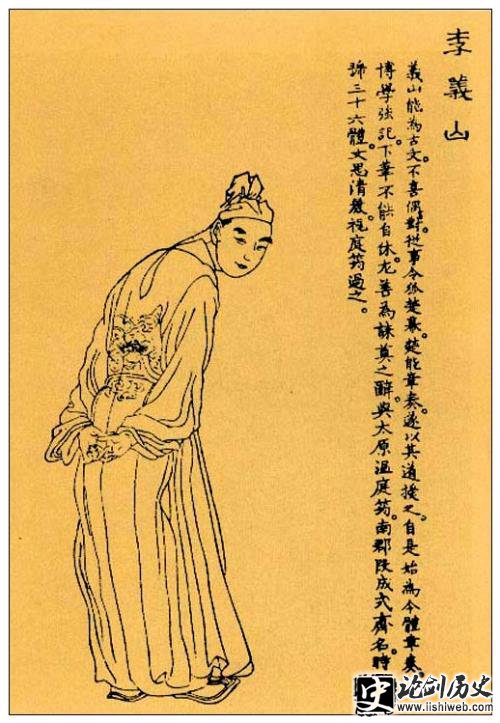 李義山
義山能為古文。不喜偶對。從事令狐楚幕。楚能章奏。遂以其道授之。自是始為今體章奏。
博學強記。下筆不能自休。尤善為誄奠之辭。與太原溫庭筠。南郡段成式齊名。時
號三十六體。文思清麗。視庭筠過之。
史 论剑历史
www.lishiweb.com